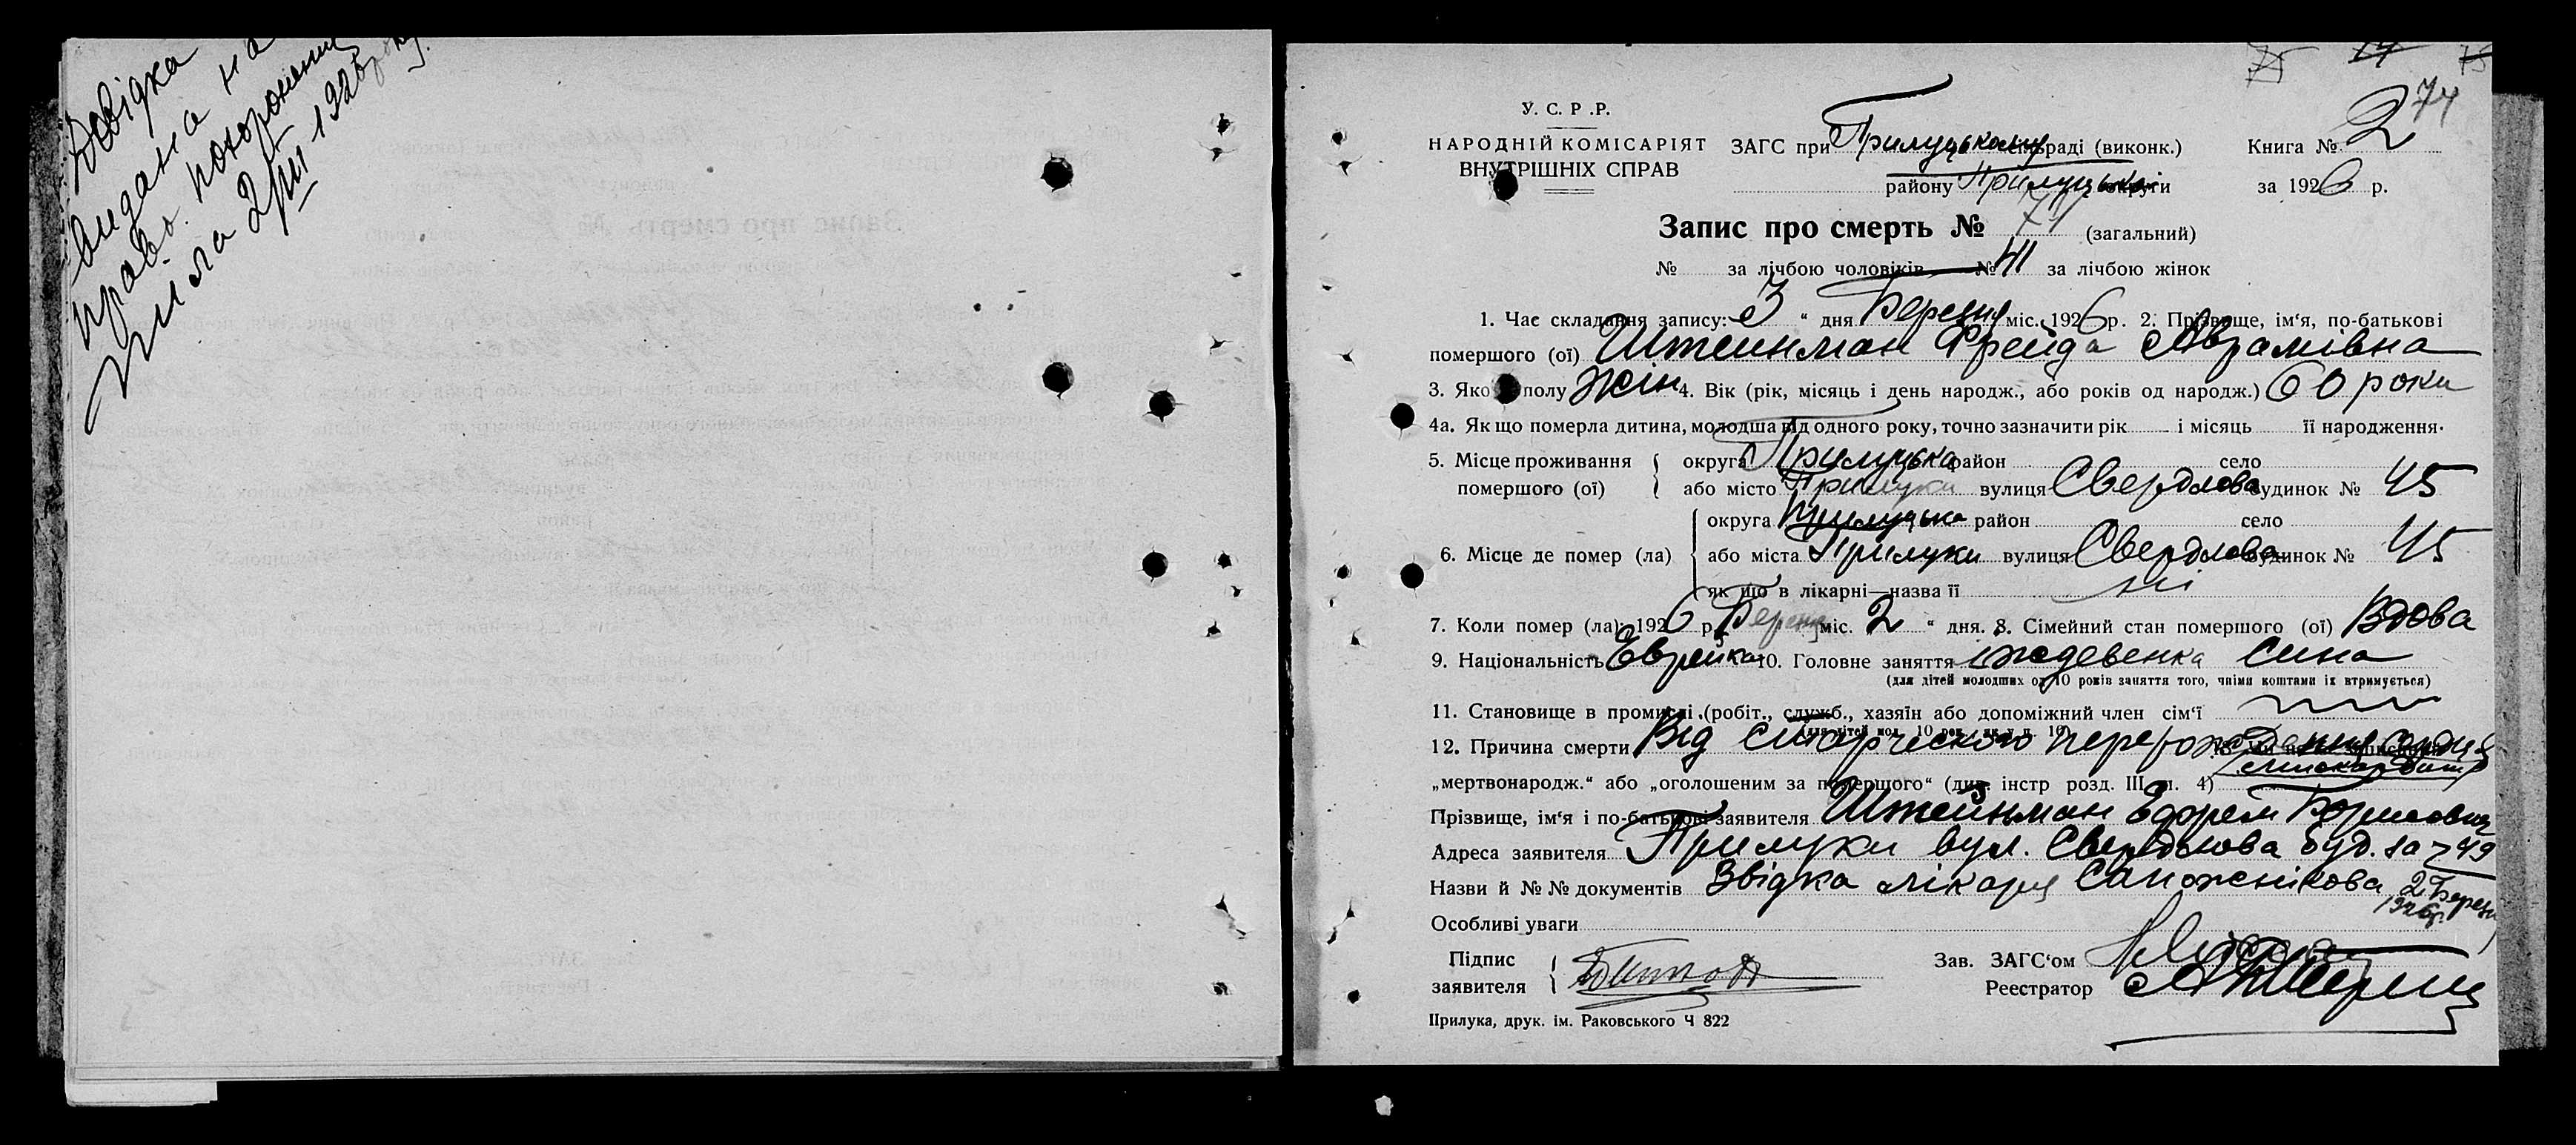 Довідка
видана на
право похоронення
тила 2/III 1926 року.
74
У. С. Р. Р.
НАРОДНІЙ КОМІСАРІЯТ
ВНУТРІШНІХ СПРАВ
ЗАГС при Прилуцькому раді (виконк.)
району Прилуцької округи
Книга № 2
за 1926 р.
Запис про смерть № 71 (загальний)
№ за лічбою чоловіків № 41 за лічбою жінок
1. Час складання запису: 3 “ дня Березня міс. 1926 р. 2. Прізвище, ім‘я, по-батькові
помершого (ої) Штейнман Фрейда Абрамівна
3. Якого полу жін 4. Вік (рік, місяць і день народж., або років од народж.) 60 роки
4а. Якщо померла дитина, молодша від одного року, точно зазначити рік і місяць її народження.
5. Місце проживання помершого (ої) { округа Прилуцька район село
або місто Прилуки вулиця Свердлова будинок № 45
6. Місце де помер (ла) { округа Прилуцька район село
або міста Прилуки вулиця Свердлова будинок № 45
як що в лікарні—назва її ні
7. Коли помер (ла): 1926 р. Березня міс. 2 “ дня. 8. Сімейний стан помершого (ої) Вдова
9. Національність Еврейка 10. Головне заняття іждевенка сина
(для дітей молодших од 10 років заняття того, чиїми коштами їх втримується)
11. Становище в промислі (робіт., служб., хазяїн або допоміжний член сім‘ї
12. Причина смерти Від старческого перерождения сердца
„мертвонародж.“ або „оголошеним за помершого“ (див. інстр розд. III п. 4)
Прізвище, ім‘я і по-батькові заявителя Штейнман Ефрем Борисович
Адреса заявителя Прилуки вул. Свердлова буд. 49
Назви й №№ документів Звідка лікаря Сапожнікова 2 Березня
1926 р.
Особливі уваги
Підпис заявителя {
Зав. ЗАГС‘ом
Реестратор
Прилука, друк. ім. Раковського Ч 822